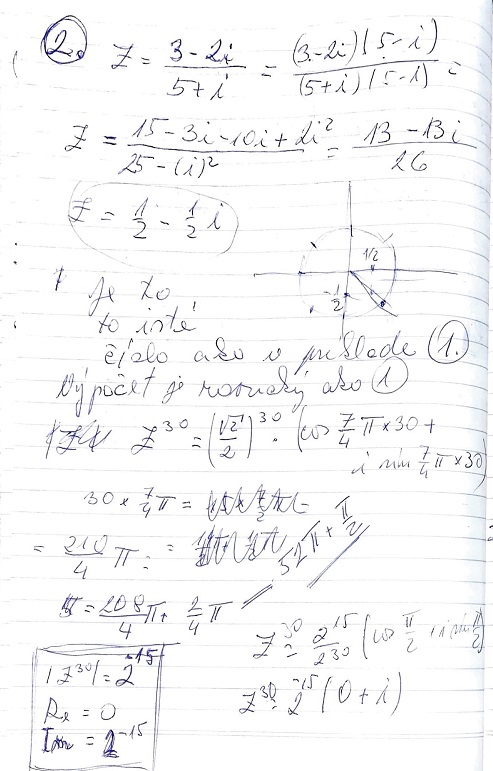 2.
Z = (3-2i)/(5+i) = (3-2i)(5-i)/(5+i)(5-i) =
Z = (15-3i-10i+2i²)/(25-(i)²) = (13-13i)/26
Z = 1/2 - 1/2 i
1/2
-1/2
Je to
to isté
číslo ako v príklade 1.
Výpočet je rovnaký ako 1
Z³⁰ = (√2/2)³⁰ · (cos 7/4 π×30 +
i sin 7/4 π×30)
30 × 7/4 π =
= 210/4 π = = 52π + π/2
= 208/4 π + 2/4 π
Z³⁰ = 2¹⁵/2³⁰ (cos π/2 + i sin π/2)
Z³⁰ = 2⁻¹⁵ (0 + i)
|Z³⁰| = 2⁻¹⁵
Re = 0
Im = 2⁻¹⁵